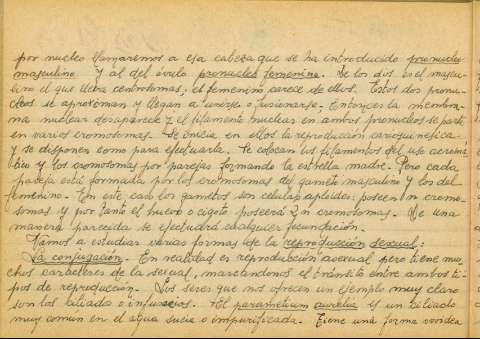 por nucleo llamaremos a esa cabeza que se ha introducido pronucleo
masculino y al del óvulo pronucleo femenino. De los dos es el mascu-
lino el que lleva centrosomas; el femenino carece de ellos. Estos dos pronu-
cleos se aproximan y llegan a unirse o fusionarse. Entonces la membra-
na nuclear desaparece y el filamento nuclear en ambos pronucleos se parte
en varios cromosomas. Se inicia en ellos la reproducción cariocinetica
y se disponen como para efectuarla. Se colocan los filamentos del uso acromá-
tico y los cromosomas por parejas formando la estrella madre. Pero cada
pareja está formada por los cromosomas del gameto masculino y los del
femenino. En este caso los gametos son celulas aploides: poseen n cromo-
somas y por tanto el huevo o cigoto poseerá 2n cromosomas. De una
manera parecida se efectuará cualquier fecundación.
Vamos a estudiar varias formas de la reproducción sexual:
La conjugación. En realidad es reproducción asexual pero tiene mu-
chos carácteres de la sexual, marcandonos el tránsito entre ambos ti-
pos de reproducción. Los seres que nos ofrecen un ejemplo muy claro
son los ciliados o infusorios. El paramecium aurelia es un ciliado
muy común en el agua sucia o impurificada. Tiene una forma ovoidea